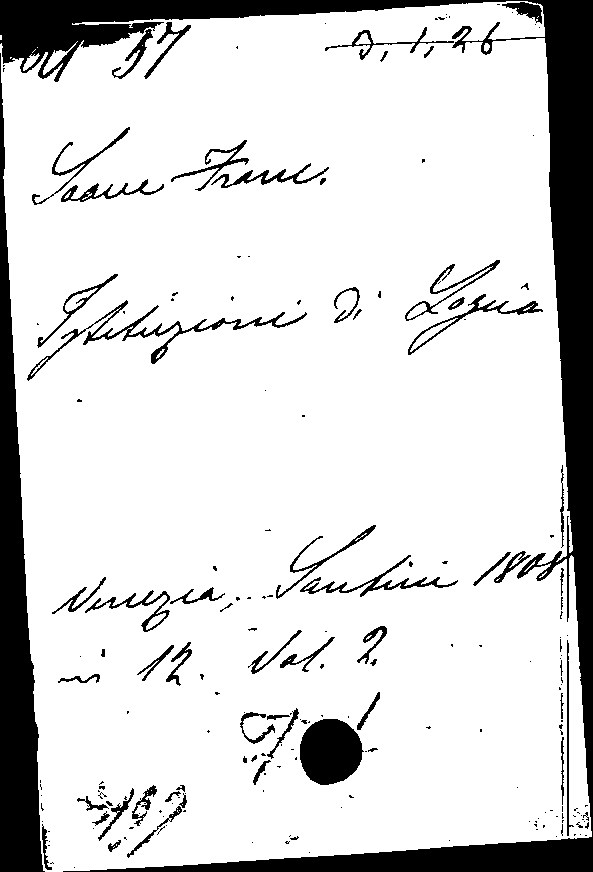 57 3, 1, 26
Soave Franc.
Istituzioni di Logica
Venezia, Santini 1808
in 12. Vol. 2.